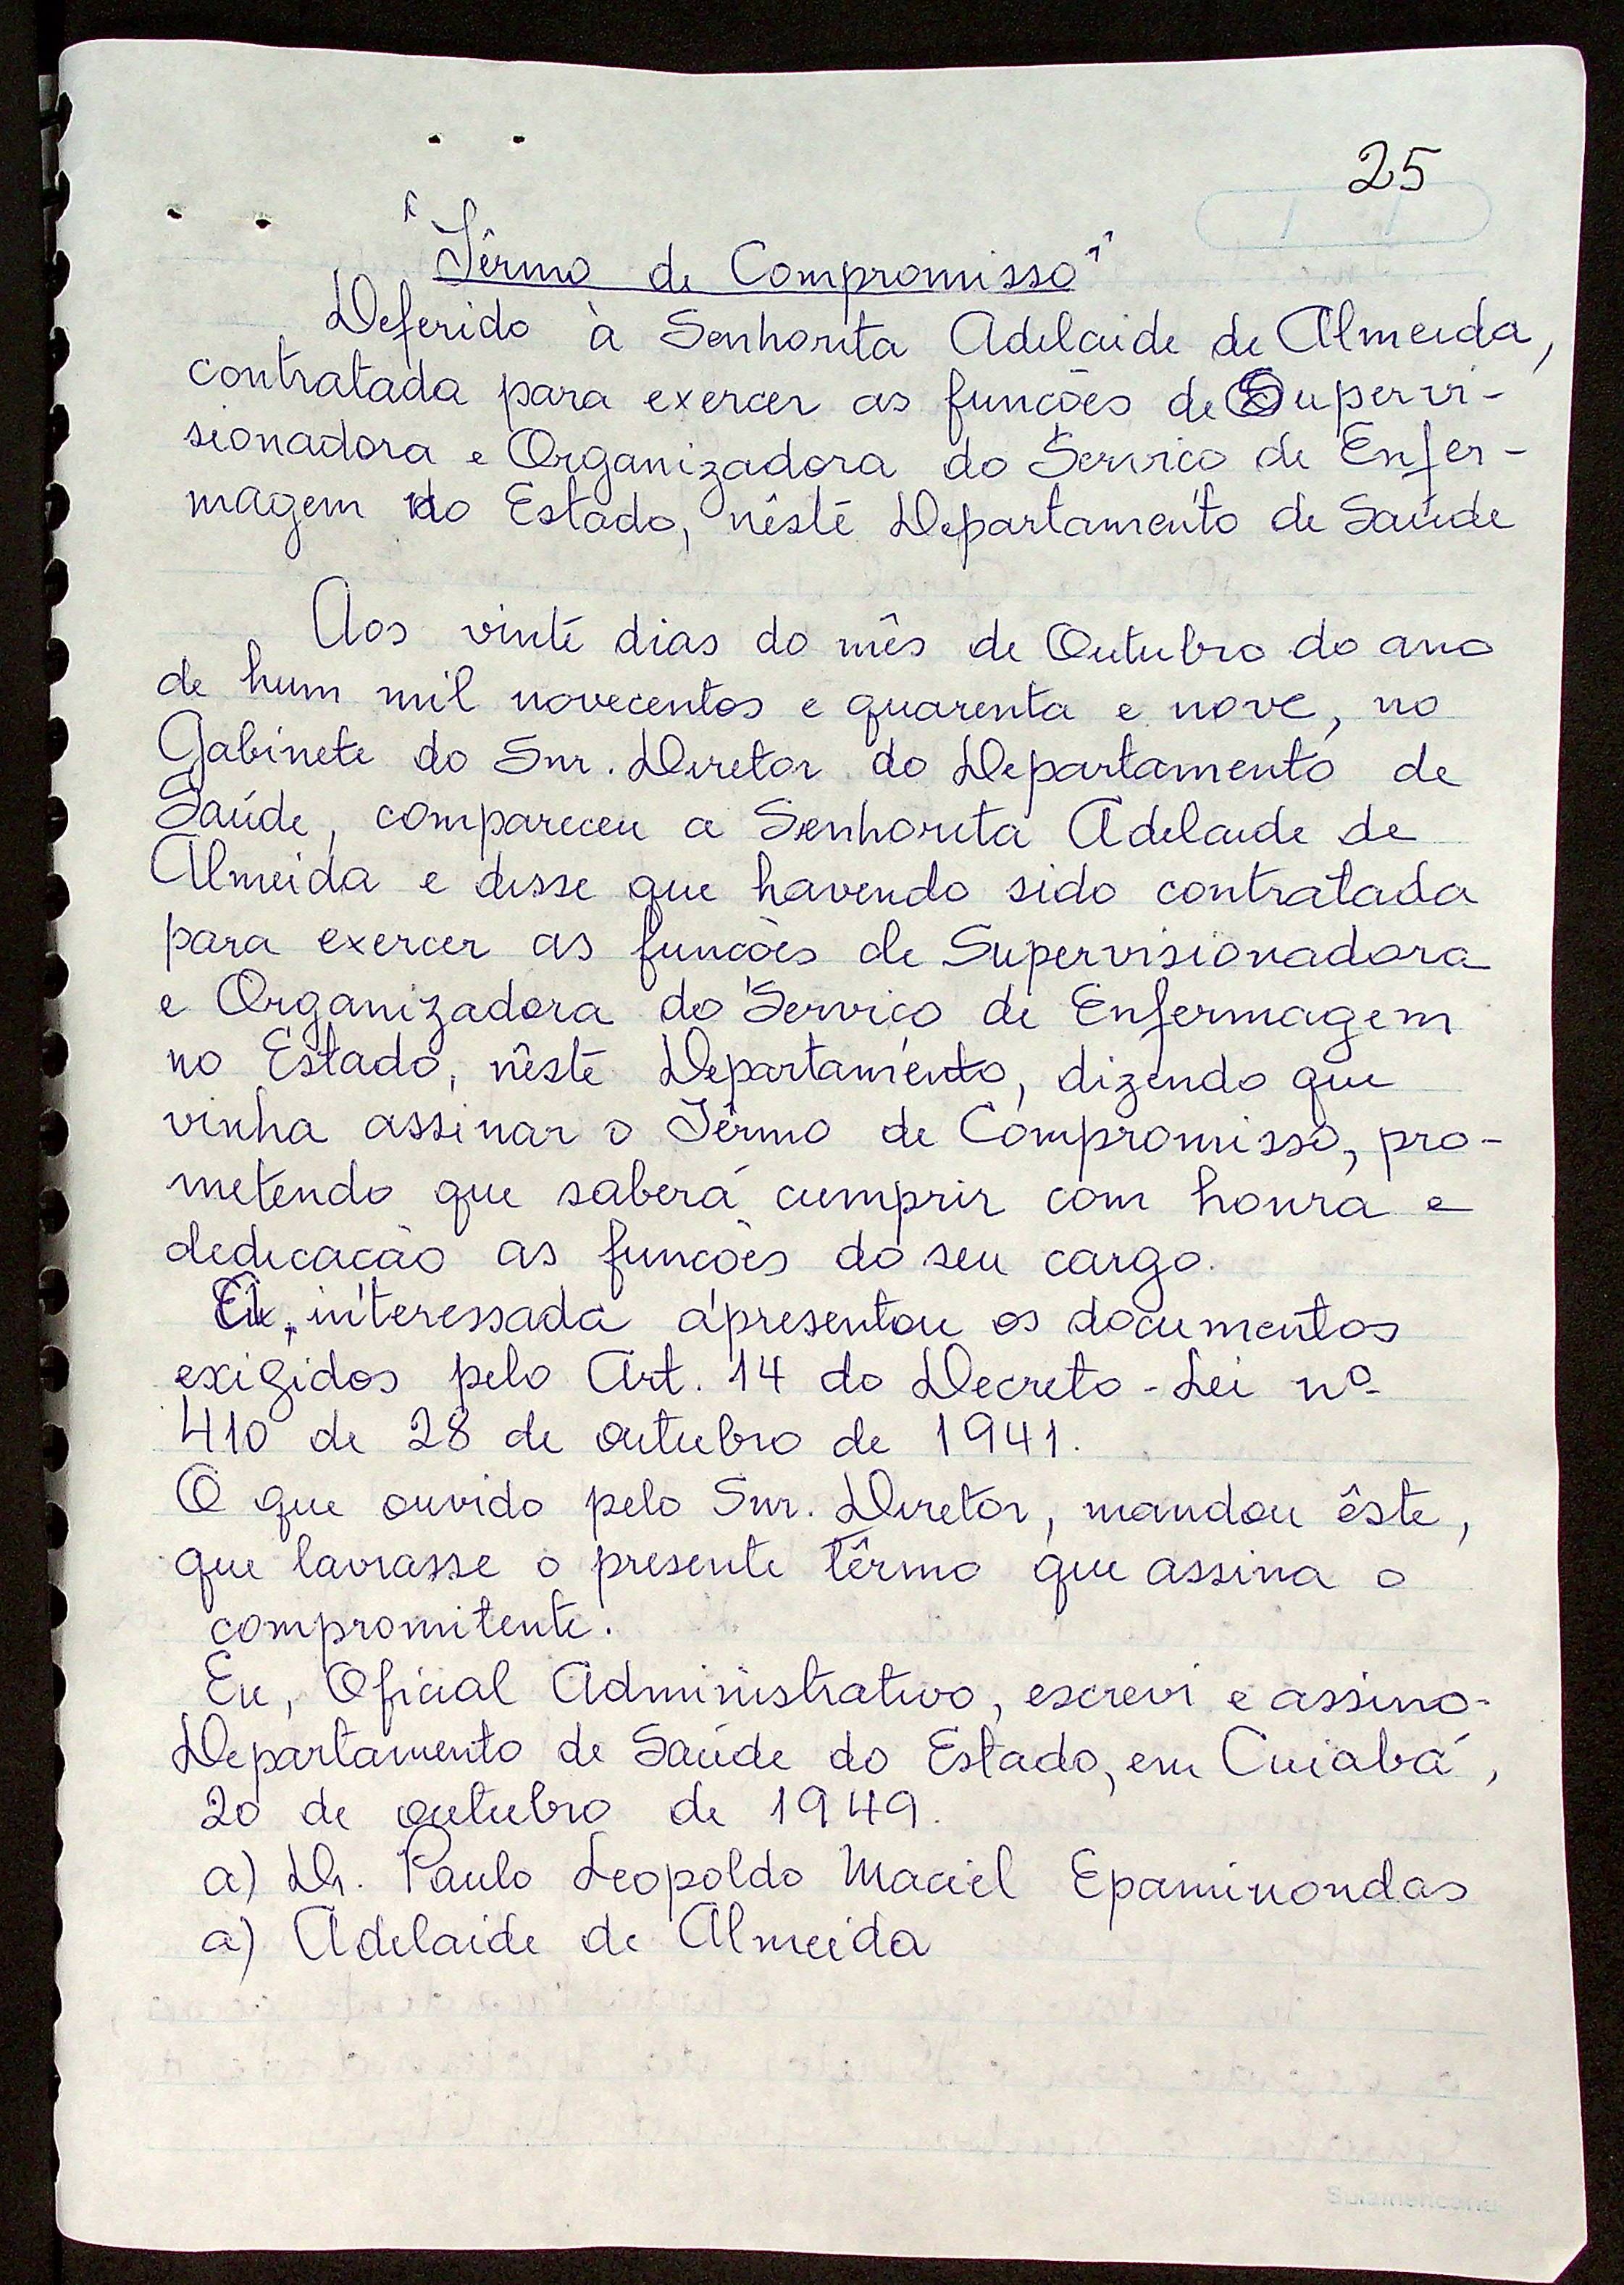 25
"Têrmo de Compromisso"
Deferido à Senhorita Adelaide de Almeida,
contratada para exercer as funcões de Supervi-
sionadora e Organizadora do Servico de Enfer-
magem do Estado, nêste Departamento de Saúde
Aos vinte dias do mês de Outubro do ano
de hum mil novecentos e quarenta e nove, no
Gabinete do Snr. Diretor do Departamento de
Saúde, compareceu a Senhorita Adelaide de
Almeida e disse que havendo sido contratada
para exercer as funcões de Supervisionadora
e Organizadora do Servico de Enfermagem
no Estado, nêste Departamento, dizendo que
vinha assinar o Têrmo de Compromisso, pro-
metendo que saberá cumprir com honra e
dedicacão as funcões do seu cargo.
interessada apresentou os documentos
exigidos pelo Art. 14 do Decreto-Lei nº
410 de 28 de outubro de 1941.
O que ouvido pelo Snr. Diretor, mandou êste,
que lavrasse o presente têrmo que assina o
compromitente.
Eu, Oficial Administrativo, escrevi e assino-
Departamento de Saúde do Estado, em Cuiabá,
20 de outubro de 1949.
a) Dr. Paulo Leopoldo Maciel Epaminondas
a) Adelaide de Almeida